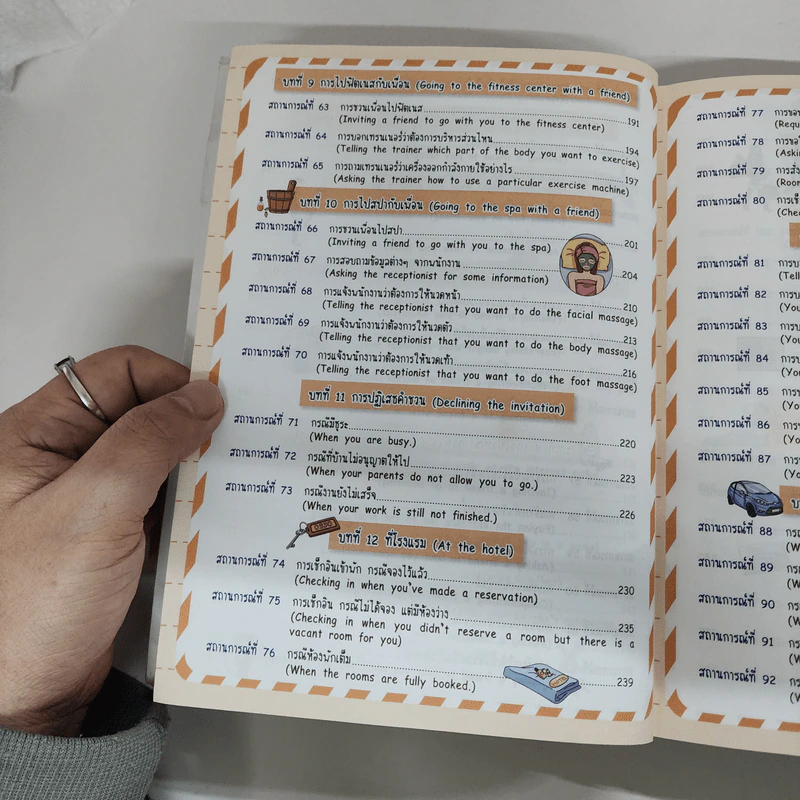 บทที่ 9 การไปฟิตเนสกับเพื่อน (Going to the fitness center with a friend)
สถานการณ์ที่ 63 การชวนเพื่อนไปฟิตเนส 191
(Inviting a friend to go with you to the fitness center)
สถานการณ์ที่ 64 การบอกเทรนเนอร์ว่าต้องการบริหารส่วนไหน 194
(Telling the trainer which part of the body you want to exercise)
สถานการณ์ที่ 65 การถามเทรนเนอร์ว่าเครื่องออกกำลังกายใช้อย่างไร 197
(Asking the trainer how to use a particular exercise machine)
บทที่ 10 การไปสปากับเพื่อน (Going to the spa with a friend)
สถานการณ์ที่ 66 การชวนเพื่อนไปสปา 201
(Inviting a friend to go with you to the spa)
สถานการณ์ที่ 67 การสอบถามข้อมูลต่างๆ จากพนักงาน 204
(Asking the receptionist for some information)
สถานการณ์ที่ 68 การแจ้งพนักงานว่าต้องการให้นวดหน้า 210
(Telling the receptionist that you want to do the facial massage)
สถานการณ์ที่ 69 การแจ้งพนักงานว่าต้องการให้นวดตัว 213
(Telling the receptionist that you want to do the body massage)
สถานการณ์ที่ 70 การแจ้งพนักงานว่าต้องการให้นวดเท้า 216
(Telling the receptionist that you want to do the foot massage)
บทที่ 11 การปฏิเสธคำชวน (Declining the invitation)
สถานการณ์ที่ 71 กรณีมีธุระ 220
(When you are busy.)
สถานการณ์ที่ 72 กรณีที่บ้านไม่อนุญาตให้ไป 223
(When your parents do not allow you to go.)
สถานการณ์ที่ 73 กรณีงานยังไม่เสร็จ 226
(When your work is still not finished.)
บทที่ 12 ที่โรงแรม (At the hotel)
สถานการณ์ที่ 74 การเช็กอินเข้าพัก กรณีจองไว้แล้ว 230
(Checking in when you've made a reservation)
สถานการณ์ที่ 75 การเช็กอิน กรณีไม่ได้จอง แต่มีห้องว่าง 235
(Checking in when you didn't reserve a room but there is a
vacant room for you)
สถานการณ์ที่ 76 กรณีห้องพักเต็ม 239
(When the rooms are fully booked.)
สถานการณ์ที่ 77
สถานการณ์ที่ 78
สถานการณ์ที่ 79
สถานการณ์ที่ 80
สถานการณ์ที่ 81
สถานการณ์ที่ 82
สถานการณ์ที่ 83
สถานการณ์ที่ 84
สถานการณ์ที่ 85
สถานการณ์ที่ 86
สถานการณ์ที่ 87
สถานการณ์ที่ 88
สถานการณ์ที่ 89
สถานการณ์ที่ 90
สถานการณ์ที่ 91
สถานการณ์ที่ 92